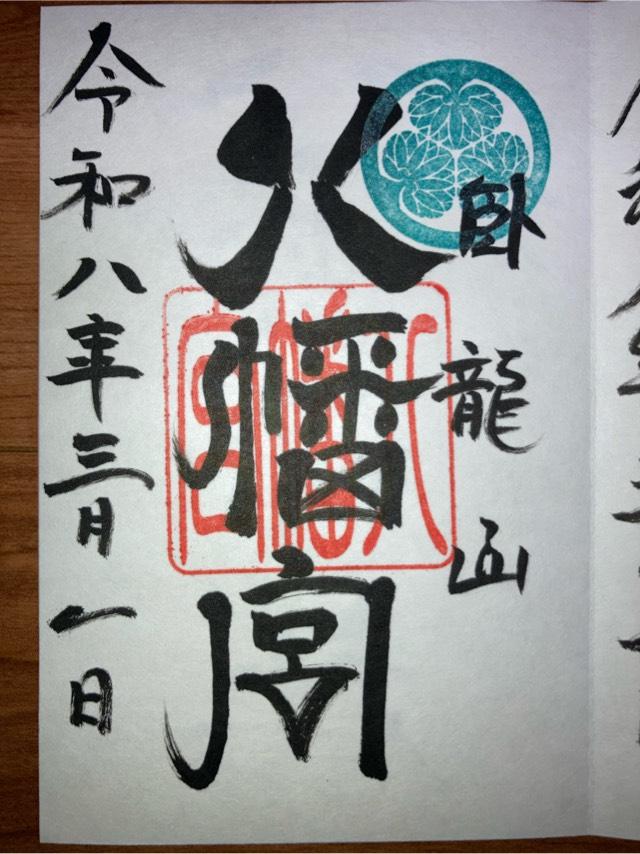 臥龍山
八幡宮
令和八年三月一日
八幡宮